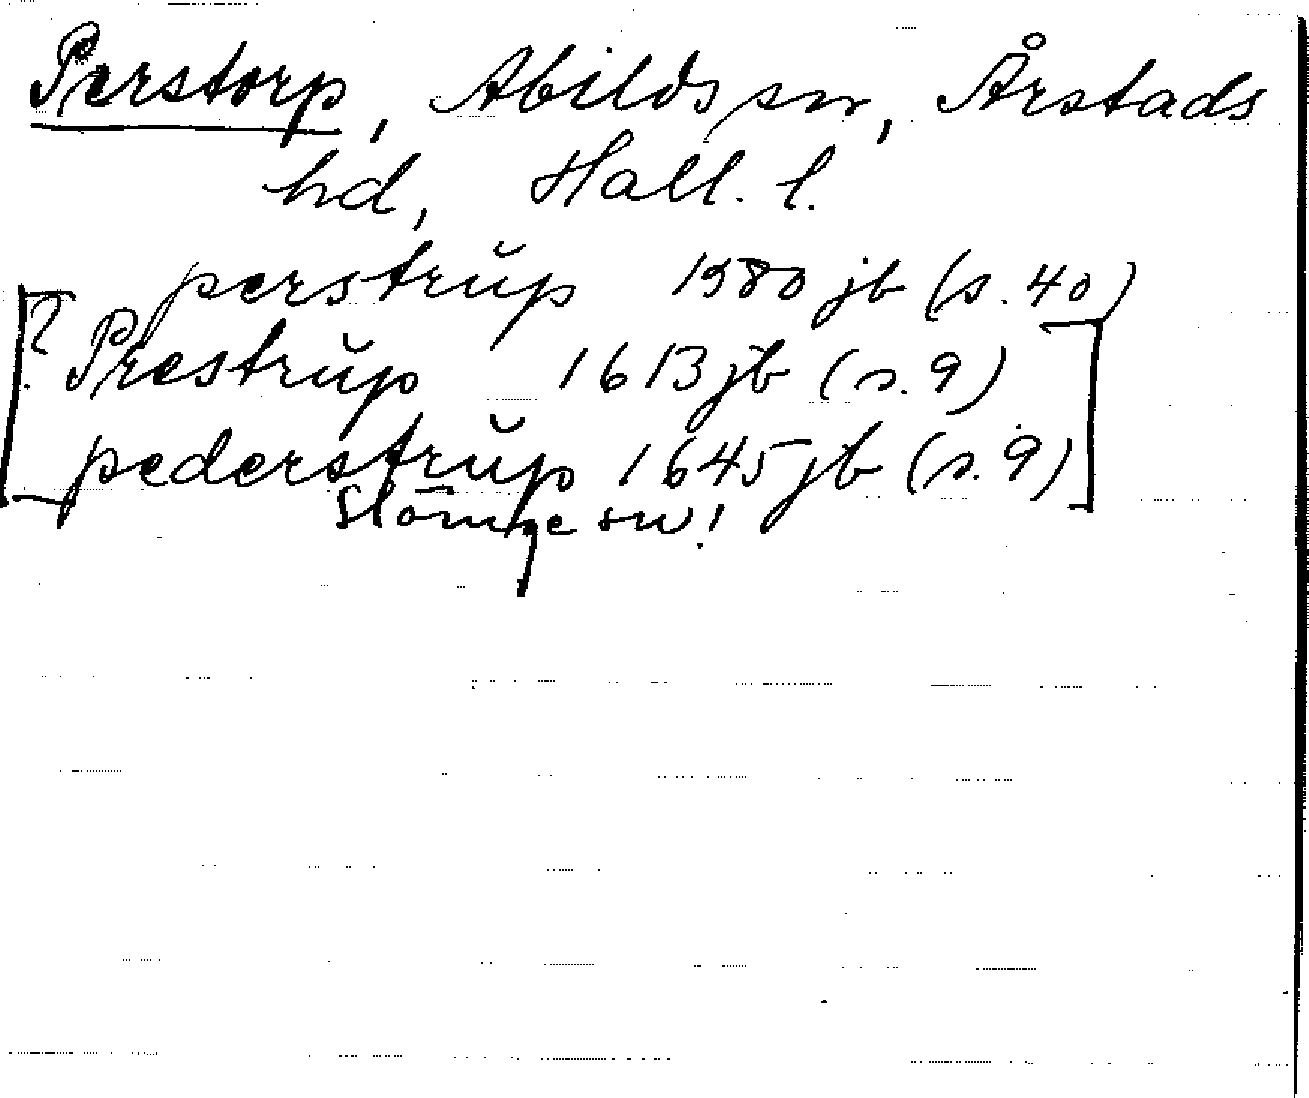 Perstorp, Abilds sn, Årstads
hd, Hall. l.
perstrŭp 1980 jb (s. 40)
[? Prestrŭp 1613 jb (s. 9)
pederstrŭp 1645 jb (s. 9)]
Slöinge sn!